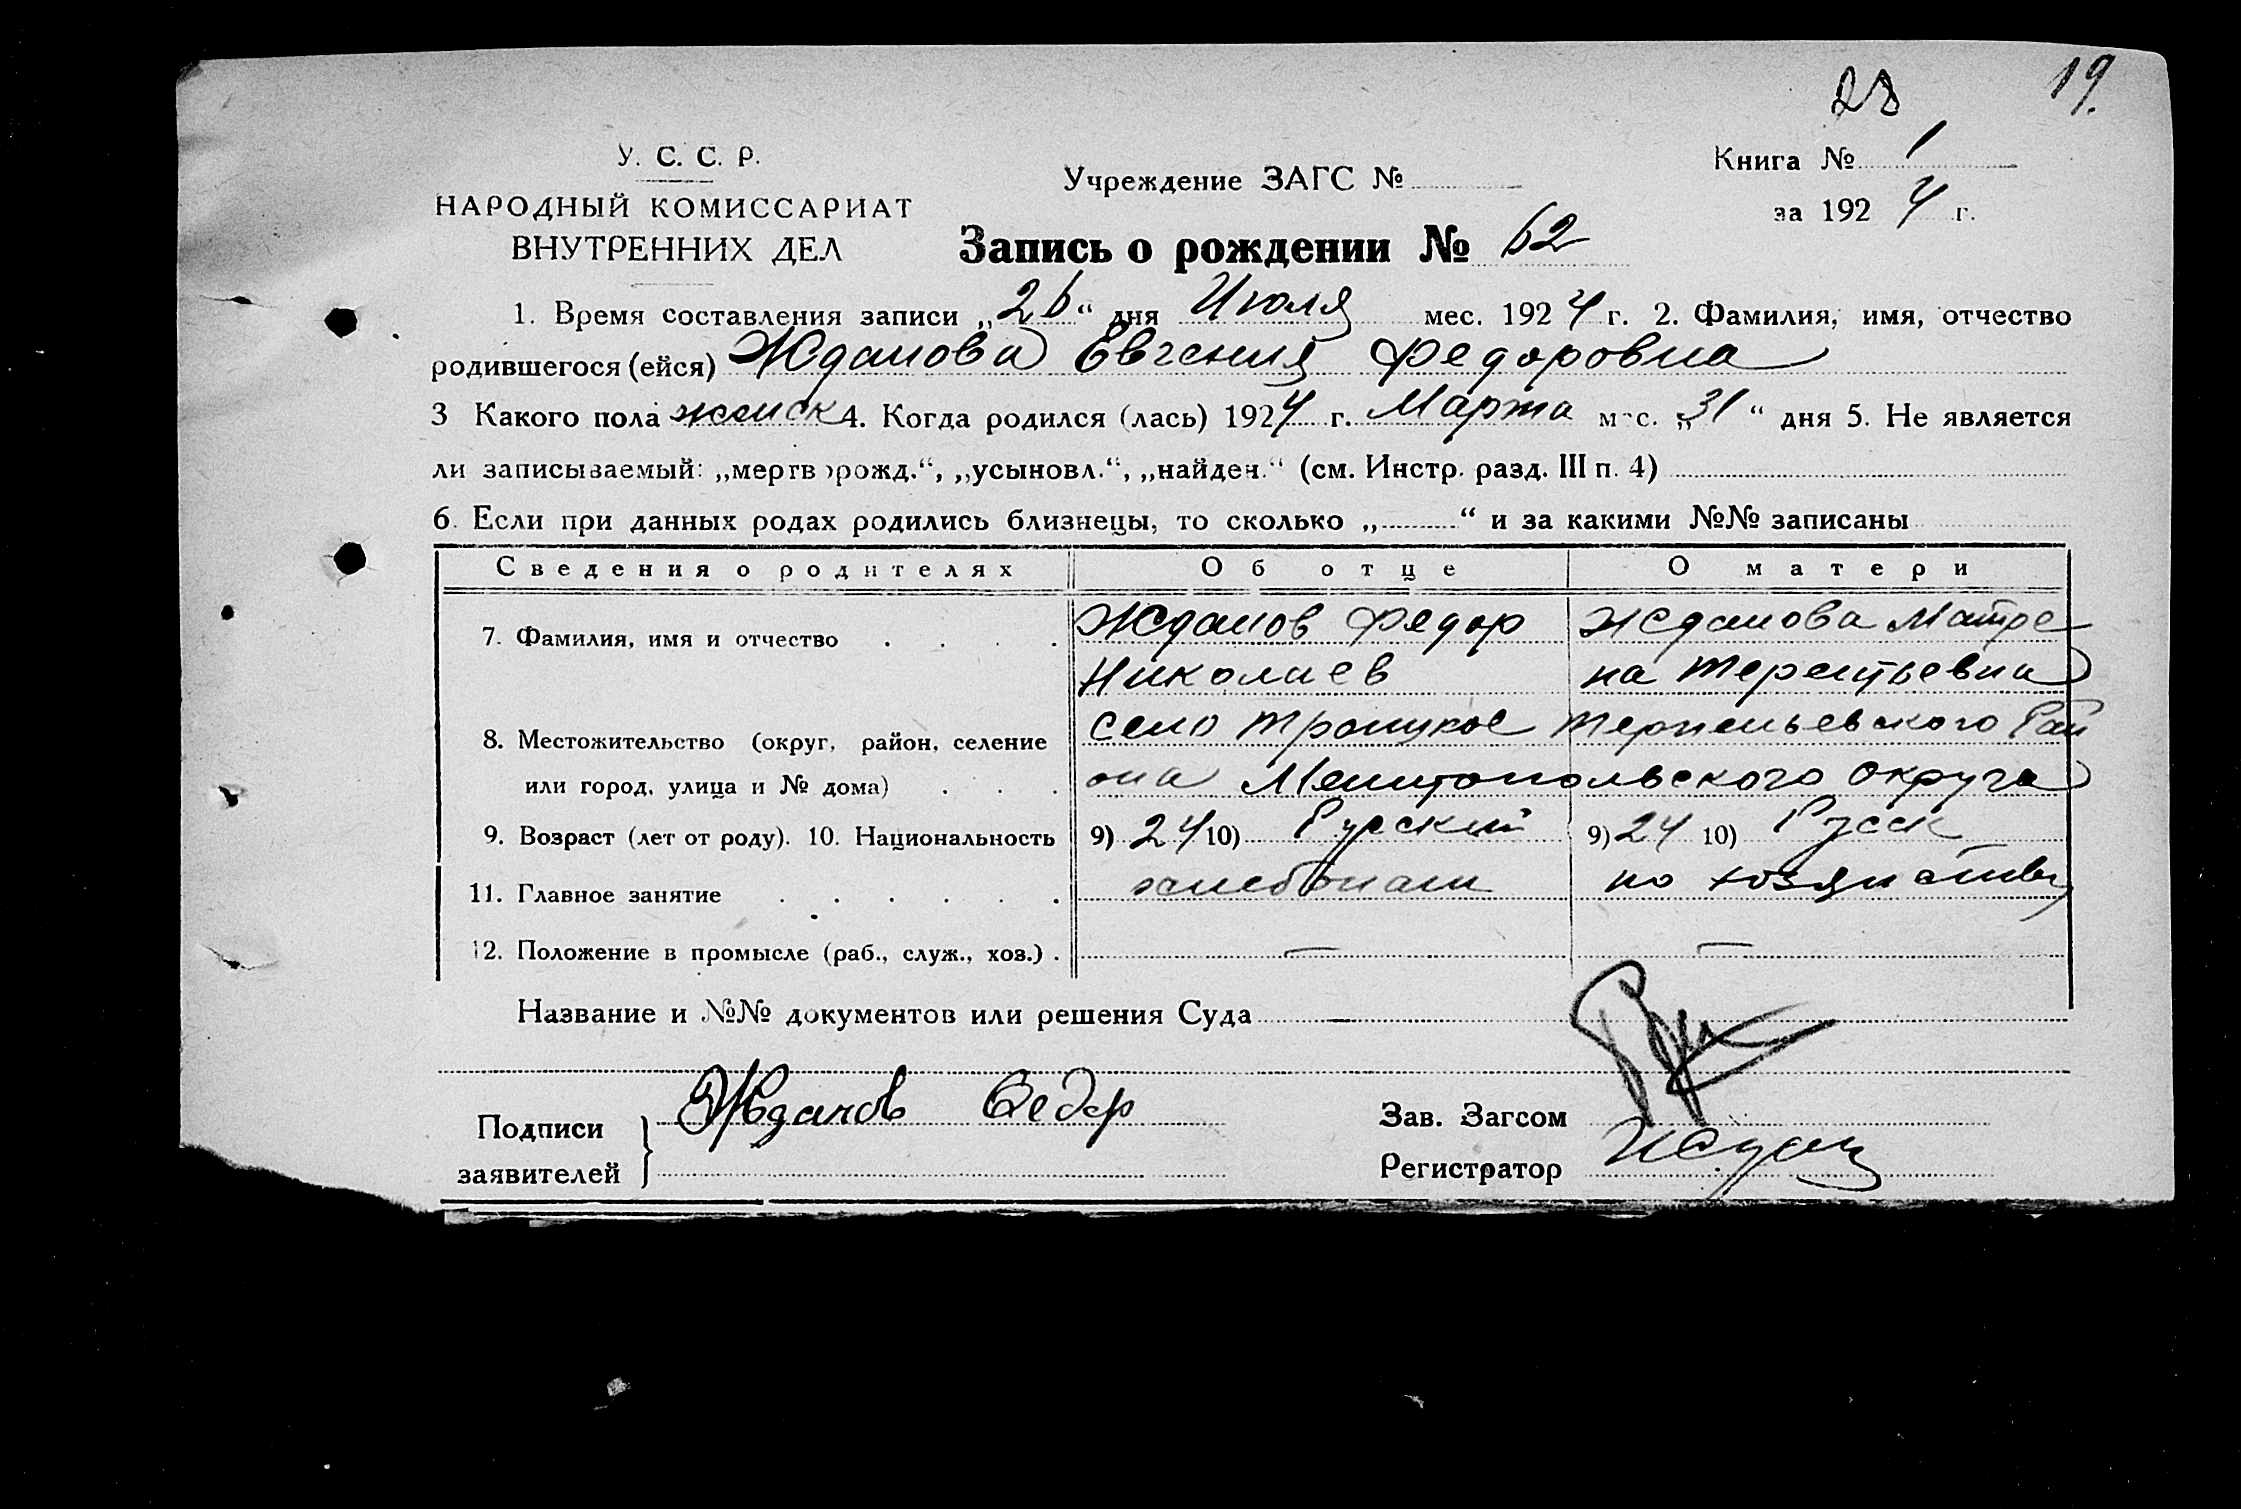 28 19.
У. С. С. Р.
НАРОДНЫЙ КОМИССАРИАТ
ВНУТРЕННИХ ДЕЛ
Учреждение ЗАГС №
Книга № 1
за 1924 г.
Запись о рождении № 62
1. Время составления записи „26“ дня Июля мес. 1924 г. 2. Фамилия, имя, отчество
родившегося (ейся) Жданова Евгения Федоровна
3 Какого пола женск 4. Когда родился (лась) 1924 г. Марта мес. „31“ дня 5. Не является
ли записываемый: „мертворожд.“, „усыновл.“, „найден.“ (см. Инстр. разд. III п. 4)
6. Если при данных родах родились близнецы, то сколько „ “ и за какими №№ записаны
Сведения о родителях Об отце О матери
7. Фамилия, имя и отчество Жданов Федор Жданова Матре
Николаев на Терентьевна
8. Местожительство (округ, район, селение село Троицкое Терпеньевского Рай
или город, улица и № дома) она Мелитопольского округа
9. Возраст (лет от роду). 10. Национальность 9) 24 10) Русский 9) 24 10) Русск
11. Главное занятие хлебопаш по хозяйству
12. Положение в промысле (раб., служ., хоз.) . — —
Название и №№ документов или решения Суда —
Подписи
заявителей
Жданов Федор
Зав. Загсом
Регистратор